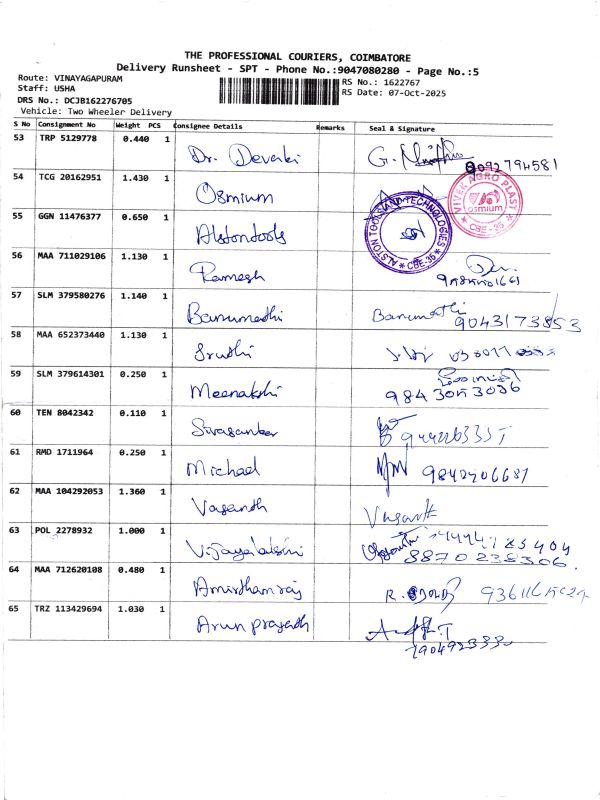 THE PROFESSIONAL COURIERS, COIMBATORE
Delivery Runsheet - SPT - Phone No.:9047080280 - Page No.:5
Route: VINAYAGAPURAM
Staff: USHA
DRS No.: DCJB162276705
Vehicle: Two Wheeler Delivery
RS No.: 1622767
RS Date: 07-Oct-2025
S No Consignment No Weight PCS Consignee Details Remarks Seal & Signature
53 TRP 5129778 0.440 1 Dr. Devaki
54 TCG 20162951 1.430 1 Osmium
VIVEK AGRO PLAST
osmium
* CBE-35 *
55 GGN 11476377 0.650 1 Alstontools
ALSTON TOOLS AND TECHNOLOGIES
* CBE-35 *
56 MAA 711029106 1.130 1 Ramesh
57 SLM 379580276 1.140 1 Banumathi Banumathi
9043173853
58 MAA 652373440 1.130 1 Sruthi
59 SLM 379614301 0.250 1 Meenakshi
9843053036
60 TEN 8042342 0.110 1 Sivasankar
61 RMD 1711964 0.250 1 Michael
62 MAA 104292053 1.360 1 Vasanth Vasanth
63 POL 2278932 1.000 1 Vijayalakshmi
8870238306.
64 MAA 712620108 0.480 1 Amirtham raj
65 TRZ 113429694 1.030 1 Arun prasath